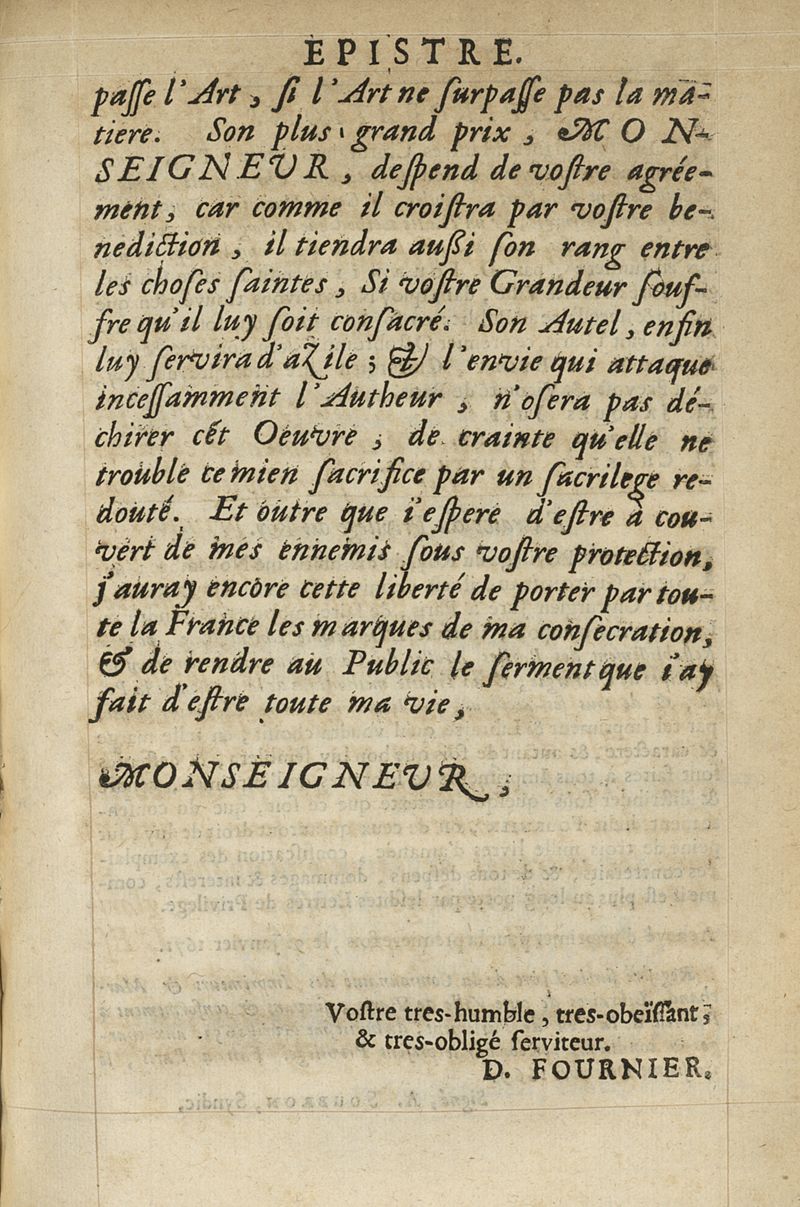 EPISTRE.
paſſe l'Art, ſi l'Art ne ſurpaſſe pas la ma-
tiere. Son plus grand prix, MON-
SEIGNEVR, deſpend de voſtre agrée-
ment, car comme il croiſtra par voſtre be-
nediction, il tiendra außi ſon rang entre
les choſes ſaintes, Si voſtre Grandeur ſouf-
fre qu'il luy ſoit conſacré. Son Autel, enfin
luy ſervira d'aZile; & l'envie qui attaque
inceſſamment l'Autheur, n'oſera pas dé-
chirer cét Oeuvre, de crainte qu'elle ne
trouble ce mien ſacrifice par un ſacrilege re-
douté. Et outre que i'eſpere d'eſtre à cou-
vert de mes ennemis ſous voſtre protection,
j'auray encore cette liberté de porter par tou-
te la France les marques de ma conſecration,
& de rendre au Public le ſerment que i'ay
fait d'eſtre toute ma vie,
MONSEIGNEVR,
Voſtre tres-humble, tres-obeïſſant,
& tres-obligé ſerviteur.
D. FOURNIER.